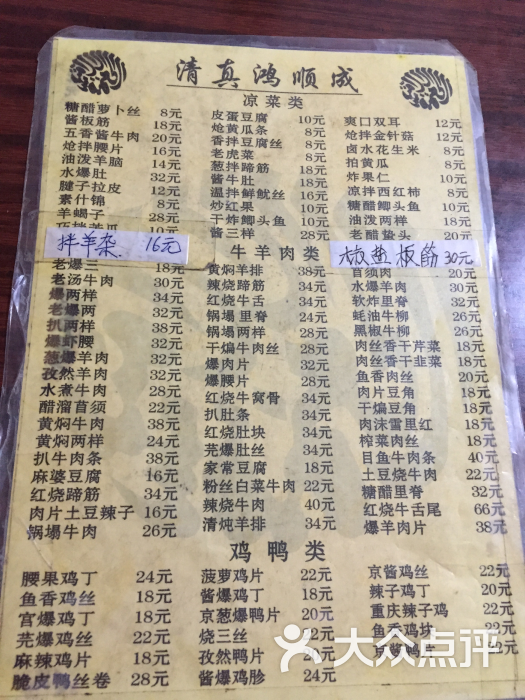 清真鸿顺成
凉菜类
糖醋萝卜丝 8元 皮蛋豆腐 10元 爽口双耳 12元
酱板筋 18元 炝黄瓜条 8元 炝拌金针菇 12元
五香酱牛肉 20元 香拌豆腐丝 8元 卤水花生米 8元
炝拌腰片 16元 老虎菜 8元 拍黄瓜 8元
油泼羊脑 14元 葱拌蹄筋 28元 炸果仁 10元
水爆肚 32元 酱牛肚 28元 凉拌西红柿 8元
腱子拉皮 12元 温拌鲜鱿丝 16元 糖醋鲫头鱼 10元
素什锦 8元 炒红果 10元 油泼两样
羊蝎子 28元 干炸鲫头鱼 10元 老醋蛰头 20元
酱三样 28元
拌羊杂 16元
牛羊肉类
椒盐板筋 30元
老爆三 18元 黄焖羊排 38元 首须肉 20元
老汤牛肉 30元 辣烧蹄筋 34元 水爆羊肉 30元
爆两样 34元 红烧牛舌 34元 软炸里脊 32元
老爆两 32元 锅塌里脊 24元 蚝油牛柳 26元
扒两样 38元 锅塌两样 28元 黑椒牛柳 26元
爆虾腰 32元 干煸牛肉丝 28元 肉丝香干芹菜 18元
葱爆羊肉 32元 爆肉片 32元 肉丝香干韭菜 18元
孜然羊肉 32元 爆腰片 28元 鱼香肉丝 20元
水煮牛肉 28元 红烧牛窝骨 34元 肉片豆角 18元
醋溜首须 22元 扒肚条 34元 干煸豆角 18元
黄焖牛肉 38元 红烧肚块 34元 肉沫雪里红 18元
黄焖两样 24元 芫爆肚丝 34元 榨菜肉丝 18元
扒牛肉条 38元 家常豆腐 18元 目鱼牛肉条 40元
麻婆豆腐 16元 粉丝白菜牛肉 32元 土豆烧牛肉 22元
红烧蹄筋 34元 辣烧牛肉 40元 糖醋里脊 32元
肉片土豆辣子 16元 清炖羊排 34元 红烧牛舌尾 66元
锅塌牛肉 26元 爆羊肉片 38元
鸡鸭类
腰果鸡丁 24元 菠萝鸡片 22元 京酱鸡丝 22元
鱼香鸡丝 18元 酱爆鸡丁 18元 辣子鸡丁 22元
宫爆鸡丁 18元 京葱爆鸭片 20元 重庆辣子鸡 22元
芫爆鸡丝 22元 烧三丝 22元 鱼香鸡块
麻辣鸡片 18元 孜然鸭片 20元 京酱鸭片
脆皮鸭丝卷 28元 酱爆鸡胗 28元
大众点评